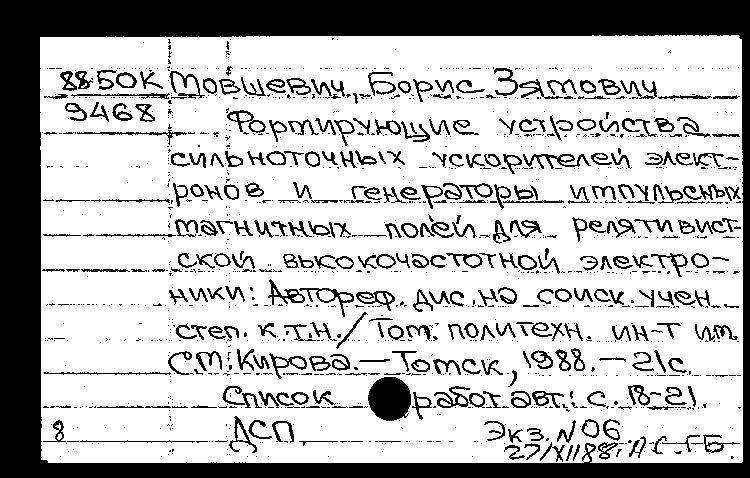 88-50К Мовшевич, Борис Зятович
9468
Формирующие устройства
сильноточных ускорителей элект-
ронов и генераторы импульсных
магнитных полей для релятивист-
ской высокочастотной электро-
ники: Автореф. дис. на соиск. учен.
степ. к.т.н./ Том. политехн. ин-т им.
С.М. Кирова. — Томск, 1988. — 21 с.
Список работ авт.: с. 18-21.
8 ДСП Экз. № 06
27/XII 88г. А С. ГБ.